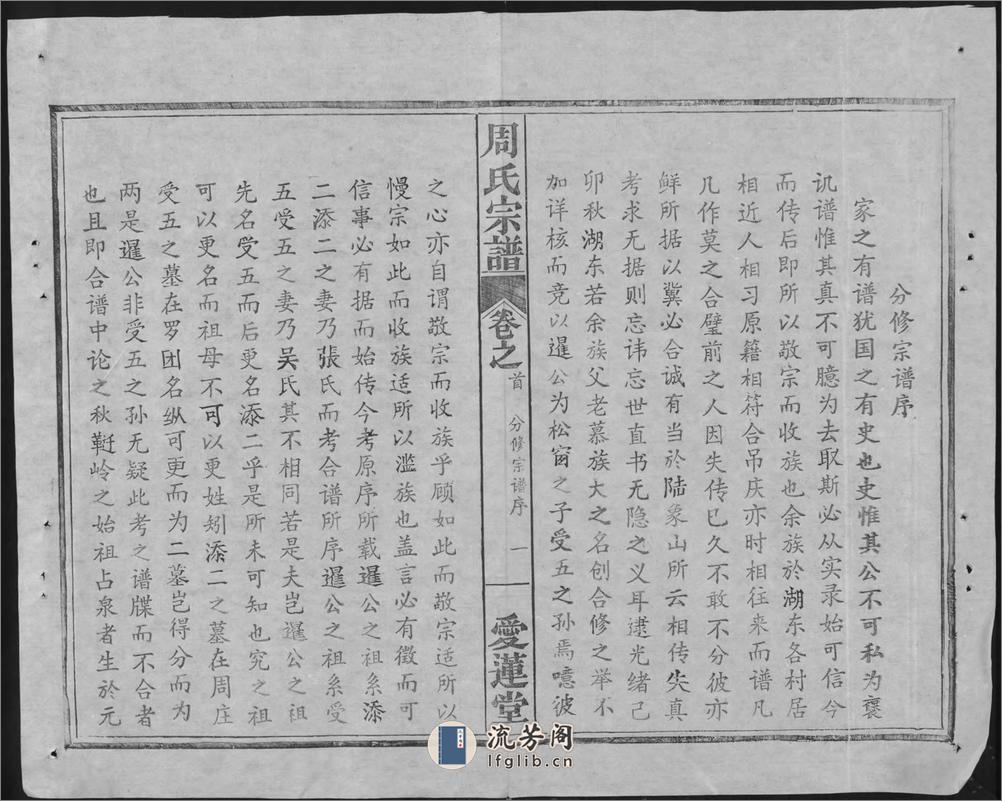 分修宗谱序
家之有谱犹国之有史也史惟其公不可私为褒
讥谱惟其真不可臆为去取斯必从实录始可信今
而传后即所以敬宗而收族也余族於湖东各村居
相近人相习原籍相符合吊庆亦时相往来而谱凡
几作莫之合璧前之人因失传已久不敢不分彼亦
鲜所据以冀必合诚有当於陆象山所云相传失真
考求无据则忘讳忘世直书无隐之义耳逮光绪己
卯秋湖东若余族父老慕族大之名创合修之举不
加详核而竟以暹公为松窗之子受五之孙焉噫彼
周氏宗譜
卷之
首
分修宗谱序
一
愛蓮堂
之心亦自谓敬宗而收族乎顾如此而敬宗适所以
慢宗如此而收族适所以滥族也盖言必有徵而可
信事必有据而始传今考原序所载暹公之祖系添
二添二之妻乃張氏而考合谱所序暹公之祖系受
五受五之妻乃吴氏其不相同若是夫岂暹公之祖
先名受五而后更名添二乎是所未可知也究之祖
可以更名而祖母不可以更姓矧添二之墓在周庄
受五之墓在罗团名纵可更而为二墓岂得分而为
两是暹公非受五之孙无疑此考之谱牒而不合者
也且即合谱中论之秋鞓岭之始祖占泉者生於元
流芳阁
lfglib.cn